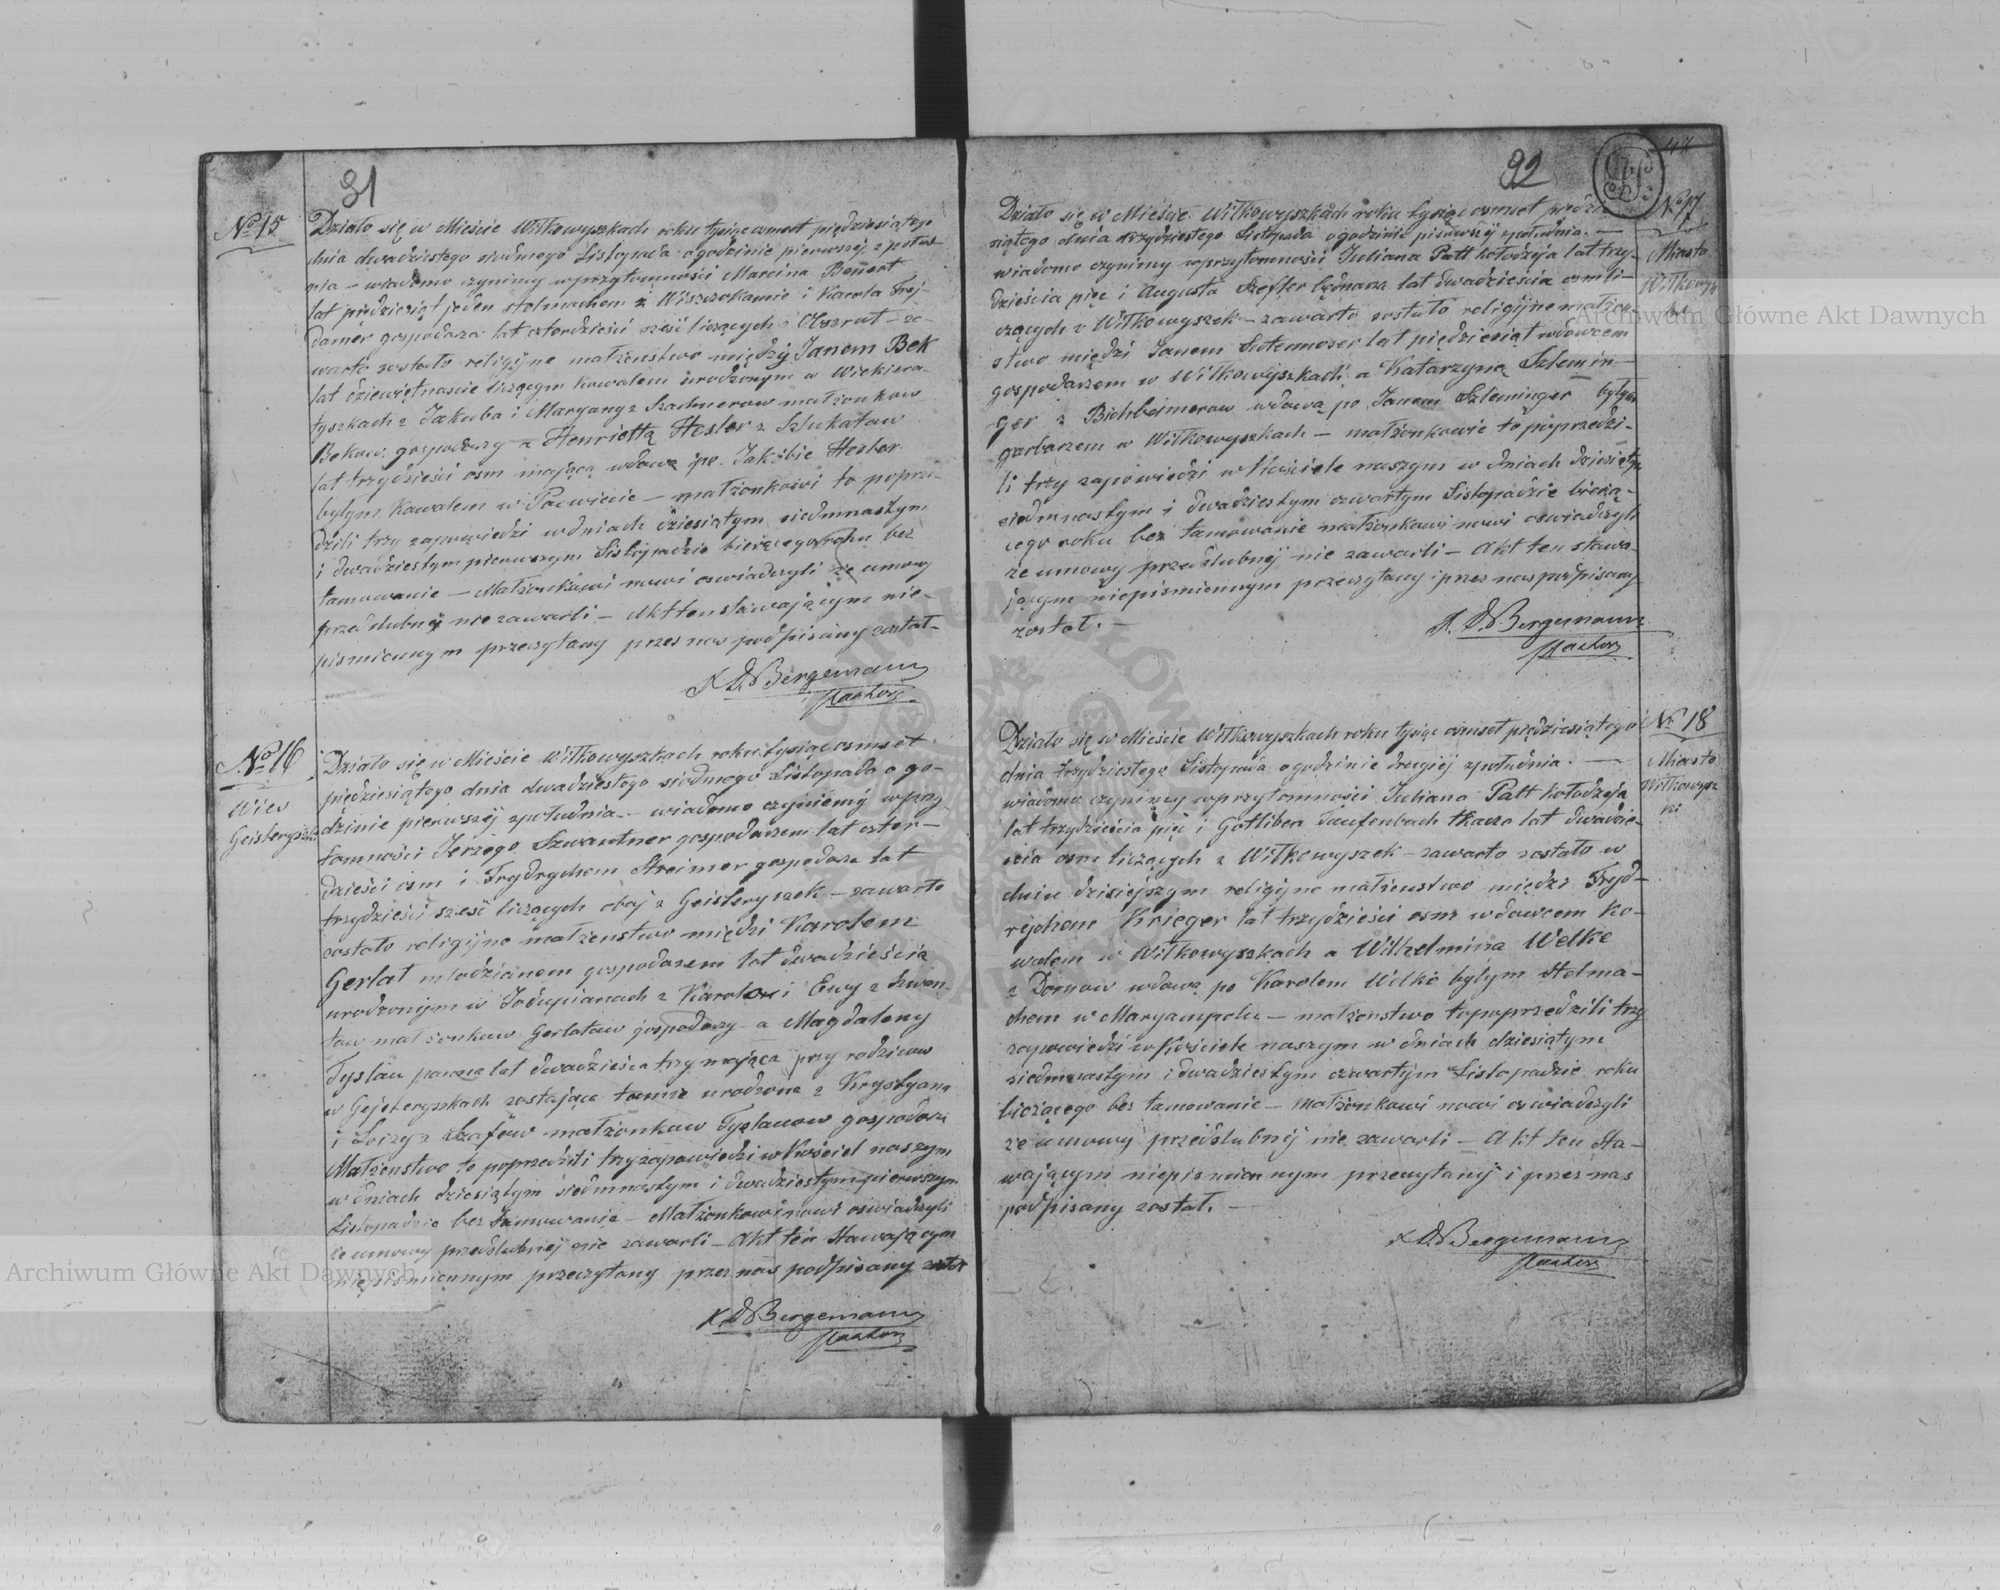 31
No 15
Działo się w Mieście Wiłkowyszkach roku tysiąc osmset pięćdziesiątego
dnia dwudziestego siodmego Listopada o godzinie pierwszej z połud-
nia – wiadomo czynimy w przytomności Marcina Bennert
lat pięćdziesiąt jeden stolmachem z Wiszczokamie i Karola Trej-
damer gospodarza lat czterdzieści sześć liczących z Obszrut – za-
warte zostało religijne małżeństwo między Janem Bek
lat dziewiętnaście liczącym kowalem urodzonym w Wiekiera-
tyszkach z Jakuba i Maryanny z Szadnerow małżonkow
Bekow gospodarzy – a Henriettą Hesler z Szlukatow
lat trzydzieści osm mającą wdową po Jakóbie Hesler
byłym Kowalem w Paewiecie – małżonkowi to poprze-
dzili trzy zapowiedzi w dniach dziesiątym siedmnastym
i dwudziestym pierwszym Listopadzie bieżącego roku bez
tamowanie – Małżonkowi nowi oswiadczyli że umowy
przedslubnej nie zawarli – Akt ten stawającym nie-
pismiennym przeczytany przez nas podpisany został –
X D. Bergemann
Pastor
No 16
Wies
Geisteryszki
Działo się w Mieście Wiłkowyszkach roku tysiąc osmset
pięćdziesiątego dnia dwudziestego siodmego Listopada o go-
dzinie pierwszej z południa – wiadomo czyniemy w przy
tomności Jerzego Szwantner gospodarzem lat czter-
dzieści osm i Frydrychem Streimer gospodarz lat
trzydzieści szesć liczących obaj z Geisteryszek – zawarte
zostało religijne małżenstwo między Karolem
Gerlat młodzianem gospodarzem lat dwadzieścia
urodzonym w Jodupianach z Karolow i Ewy z Szwan-
tow małżonkow Gerlatow gospodarzy – a Magdaleny
Tyslau panną lat dwadzieścia trzy mająca przy rodzicow
w Gejsteryszkach zostająca tamże urodzona z Krystyana
i Loizy z Szafow małżonkow Tyslauow gospodarzy
Małżenstwo to poprzedzili trzy zapowiedzi w Kościel naszym
w dniach dziesiątym siedmnastym i dwudziestym pierwszym
Listopadzie bez tamowanie – Małżonkowi nowi oswiadczyli
że umowy przedslubnej nie zawarli – Akt ten stawającym
niepismiennym przeczytany przez nas podpisany został
X D Bergemann
Pastor
92
48
No 17
Miasto
Wiłkowysz
ki
Działo się w Mieście Wiłkowyszkach roku tysiąc osmset pięćdzie-
siątego dnia trzydziestego Listopada o godzinie pierwszej z południa. –
wiadomo czynimy w przytomności Juliana Patt kołodzeja lat trzy-
dzieścia pięc i Augusta Szefler lednarza lat dwadzieścia osm li-
czących z Wiłkowyszek – zawarto zostało religijne małżen-
stwo między Janem Sutamozer lat pięćdziesiąt wdowcem
gospodarzem w Wiłkowyszkach a Katarzyną Szlemin-
ger z Bichbeimerow wdową po Janem Szleminger byłym
garbarzem w Wiłkowyszkach – małżonkowie to poprzedzi-
li trzy zapowiedzi w Kościele naszym w dniach dziesiątym
siedmnastym i dwudziestym czwartym Listopadzie bieżą-
cego roku bez tamowanie małżonkowi nowi oswiadczyli
że umowy przedslubnej nie zawarli – Akt ten stawa-
jącym niepismiennym przeczytany i przez nas podpisany
został. –
X. D. Bergemann
Pastor
No 18
Miasto
Wiłkowysz
ki
Działo się w Mieście Wiłkowyszkach roku tysiąc osmset pięćdziesiątego
dnia trzydziestego Listopada o godzinie drugiej z południa. –
wiadomo czynimy w przytomności Juliana Patt kołodzeja
lat trzydzieścia pięć i Gotlibem Taufenbach tkacza lat dwadzie-
ścia osm liczących z Wiłkowyszek – zawarto zostało w
dniu dzisiejszym religijne małżenstwo między Fryd-
rychem Krieger lat trzydzieści osm wdowcem ko-
walem w Wiłkowyszkach a Wilhelmina Welke
z Dornow wdową po Karolem Wilke byłym stelma-
chem w Maryampolu – małżenstwo to poprzedzili trzy
zapowiedzi w Kościele naszym w dniach dziesiątym
siedmnastym i dwudziestym czwartym Listopadzie roku
bieżącego bez tamowanie – małżonkowi nowi oswiadczyli
że umowy przedslubnej nie zawarli – Akt ten sta-
wającym niepismiennym przeczytany i przez nas
podpisany został. –
X D. Bergemann
Pastor
Archiwum Główne Akt Dawnych
Archiwum Główne Akt Dawnych